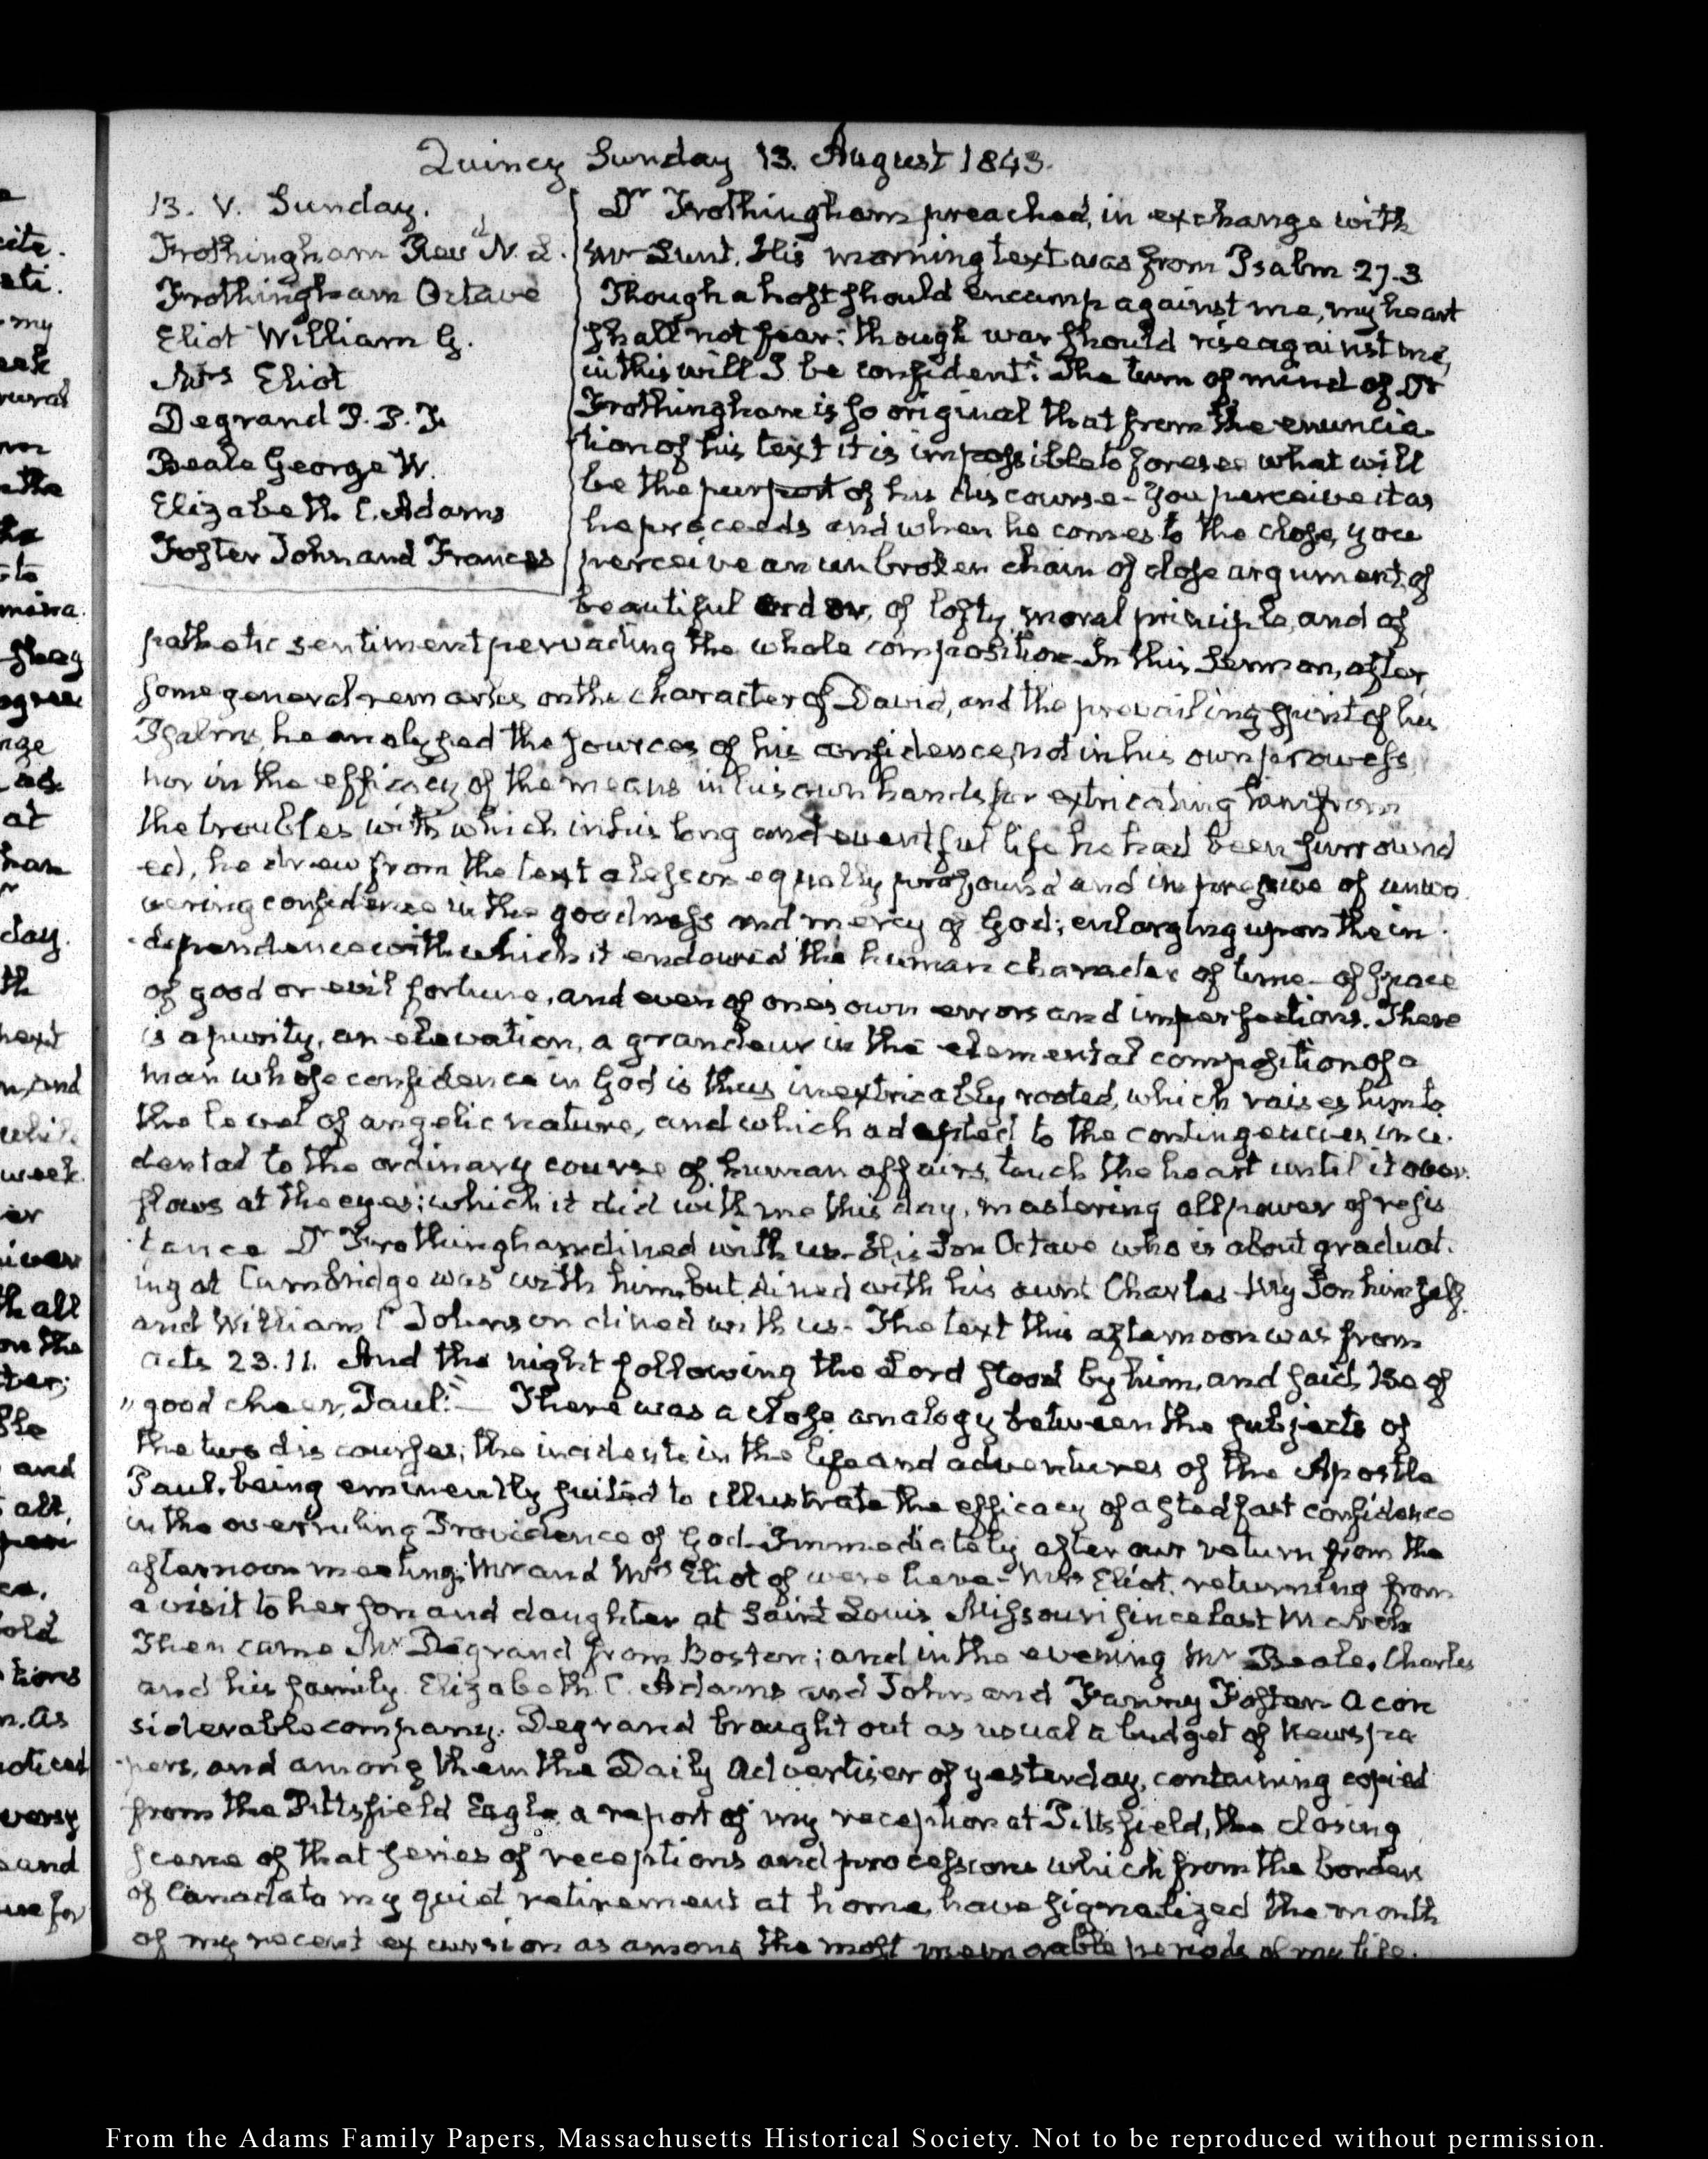 Quincy Sunday 13. August 1843.
13. V. Sunday.
Frothingham Revd N. L.
Frothingham Octave
Eliot William G.
Mrs Eliot
Degrand P. P. F.
Beale George W.
Elizabeth C. Adams
Foster John and Frances
Dr Frothingham preached, in exchange with
Mr Lunt. His morning text was from Psalm 27.3
Though a host should encamp against me, my heart
shall not fear: though war should rise against me,
in this will I be confident". The turn of mind of Dr
Frothingham is so original that from the enuncia-
tion of his text it is impossible to foresee what will
be the purport of his discourse - You perceive it as
he proceeds and when he comes to the close, you
perceive an unbroken chain of close argument, of
beautiful order, of lofty, moral principle, and of
pathetic sentiment pervading the whole composition - In this Sermon, after
some general remarks on the character of David, and the prevailing spirit of his
Psalms, he analyzed the sources of his confidence, not in his own prowess,
nor in the efficacy of the means in his own hands for extricating him from
the troubles with which in his long and eventful life he had been surround
ed, he drew from the text a lesson equally profound and impressive of unwa
vering confidence in the goodness and mercy of God; enlarging upon the in-
dependence with which it endowed the human character of time - of space
of good or evil fortune, and even of one's own errors and imperfections. There
is a purity, an elevation, a grandeur in the elemental composition of a
man whose confidence in God is thus inextricably rooted, which raises him to
the level of angelic nature, and which adapted to the contingencies inci-
dental to the ordinary course of human affairs, touch the heart until it over-
flows at the eyes; which it did with me this day, mastering all power of resis
tance Dr Frothingham dined with us - His Son Octave who is about graduat-
ing at Cambridge was with him, but dined with his aunt Charles - My Son himself
and William C Johnson dined with us - The text this afternoon was from
Acts 23.11. And the night following the Lord stood by him, and said, Be of
" good cheer, Paul:" - There was a close analogy between the subjects of
the two discourses; the incidents in the life and adventures of the Apostle
Paul, being eminently suited to illustrate the efficacy of a stedfast confidence
in the overruling Providence of God - Immediately after our return from the
afternoon meeting; Mr and Mrs Eliot of were here - Mrs Eliot, returning from
a visit to her son and daughter at Saint Louis Missouri since last March
Then came Mr Degrand from Boston; and in the evening Mr Beale, Charles
and his family Elizabeth C. Adams and John and Fanny Foster - A con
siderable company. Degrand brought out as usual a budget of Newspa
pers, and among them the Daily Advertiser of yesterday, containing copied
from the Pittsfield Eagle a report of my reception at Pittsfield, the closing
scene of that series of receptions and processions which from the borders
of Canada to my quiet retirement at home, have signalized the month
of my recent excursion as among the most memorable periods of my life.
From the Adams Family Papers, Massachusetts Historical Society. Not to be reproduced without permission.